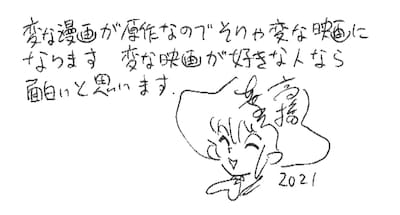 変な漫画が原作なのでそりゃ変な映画に
なります 変な映画が好きな人なら
面白いと思います.
高橋
2021